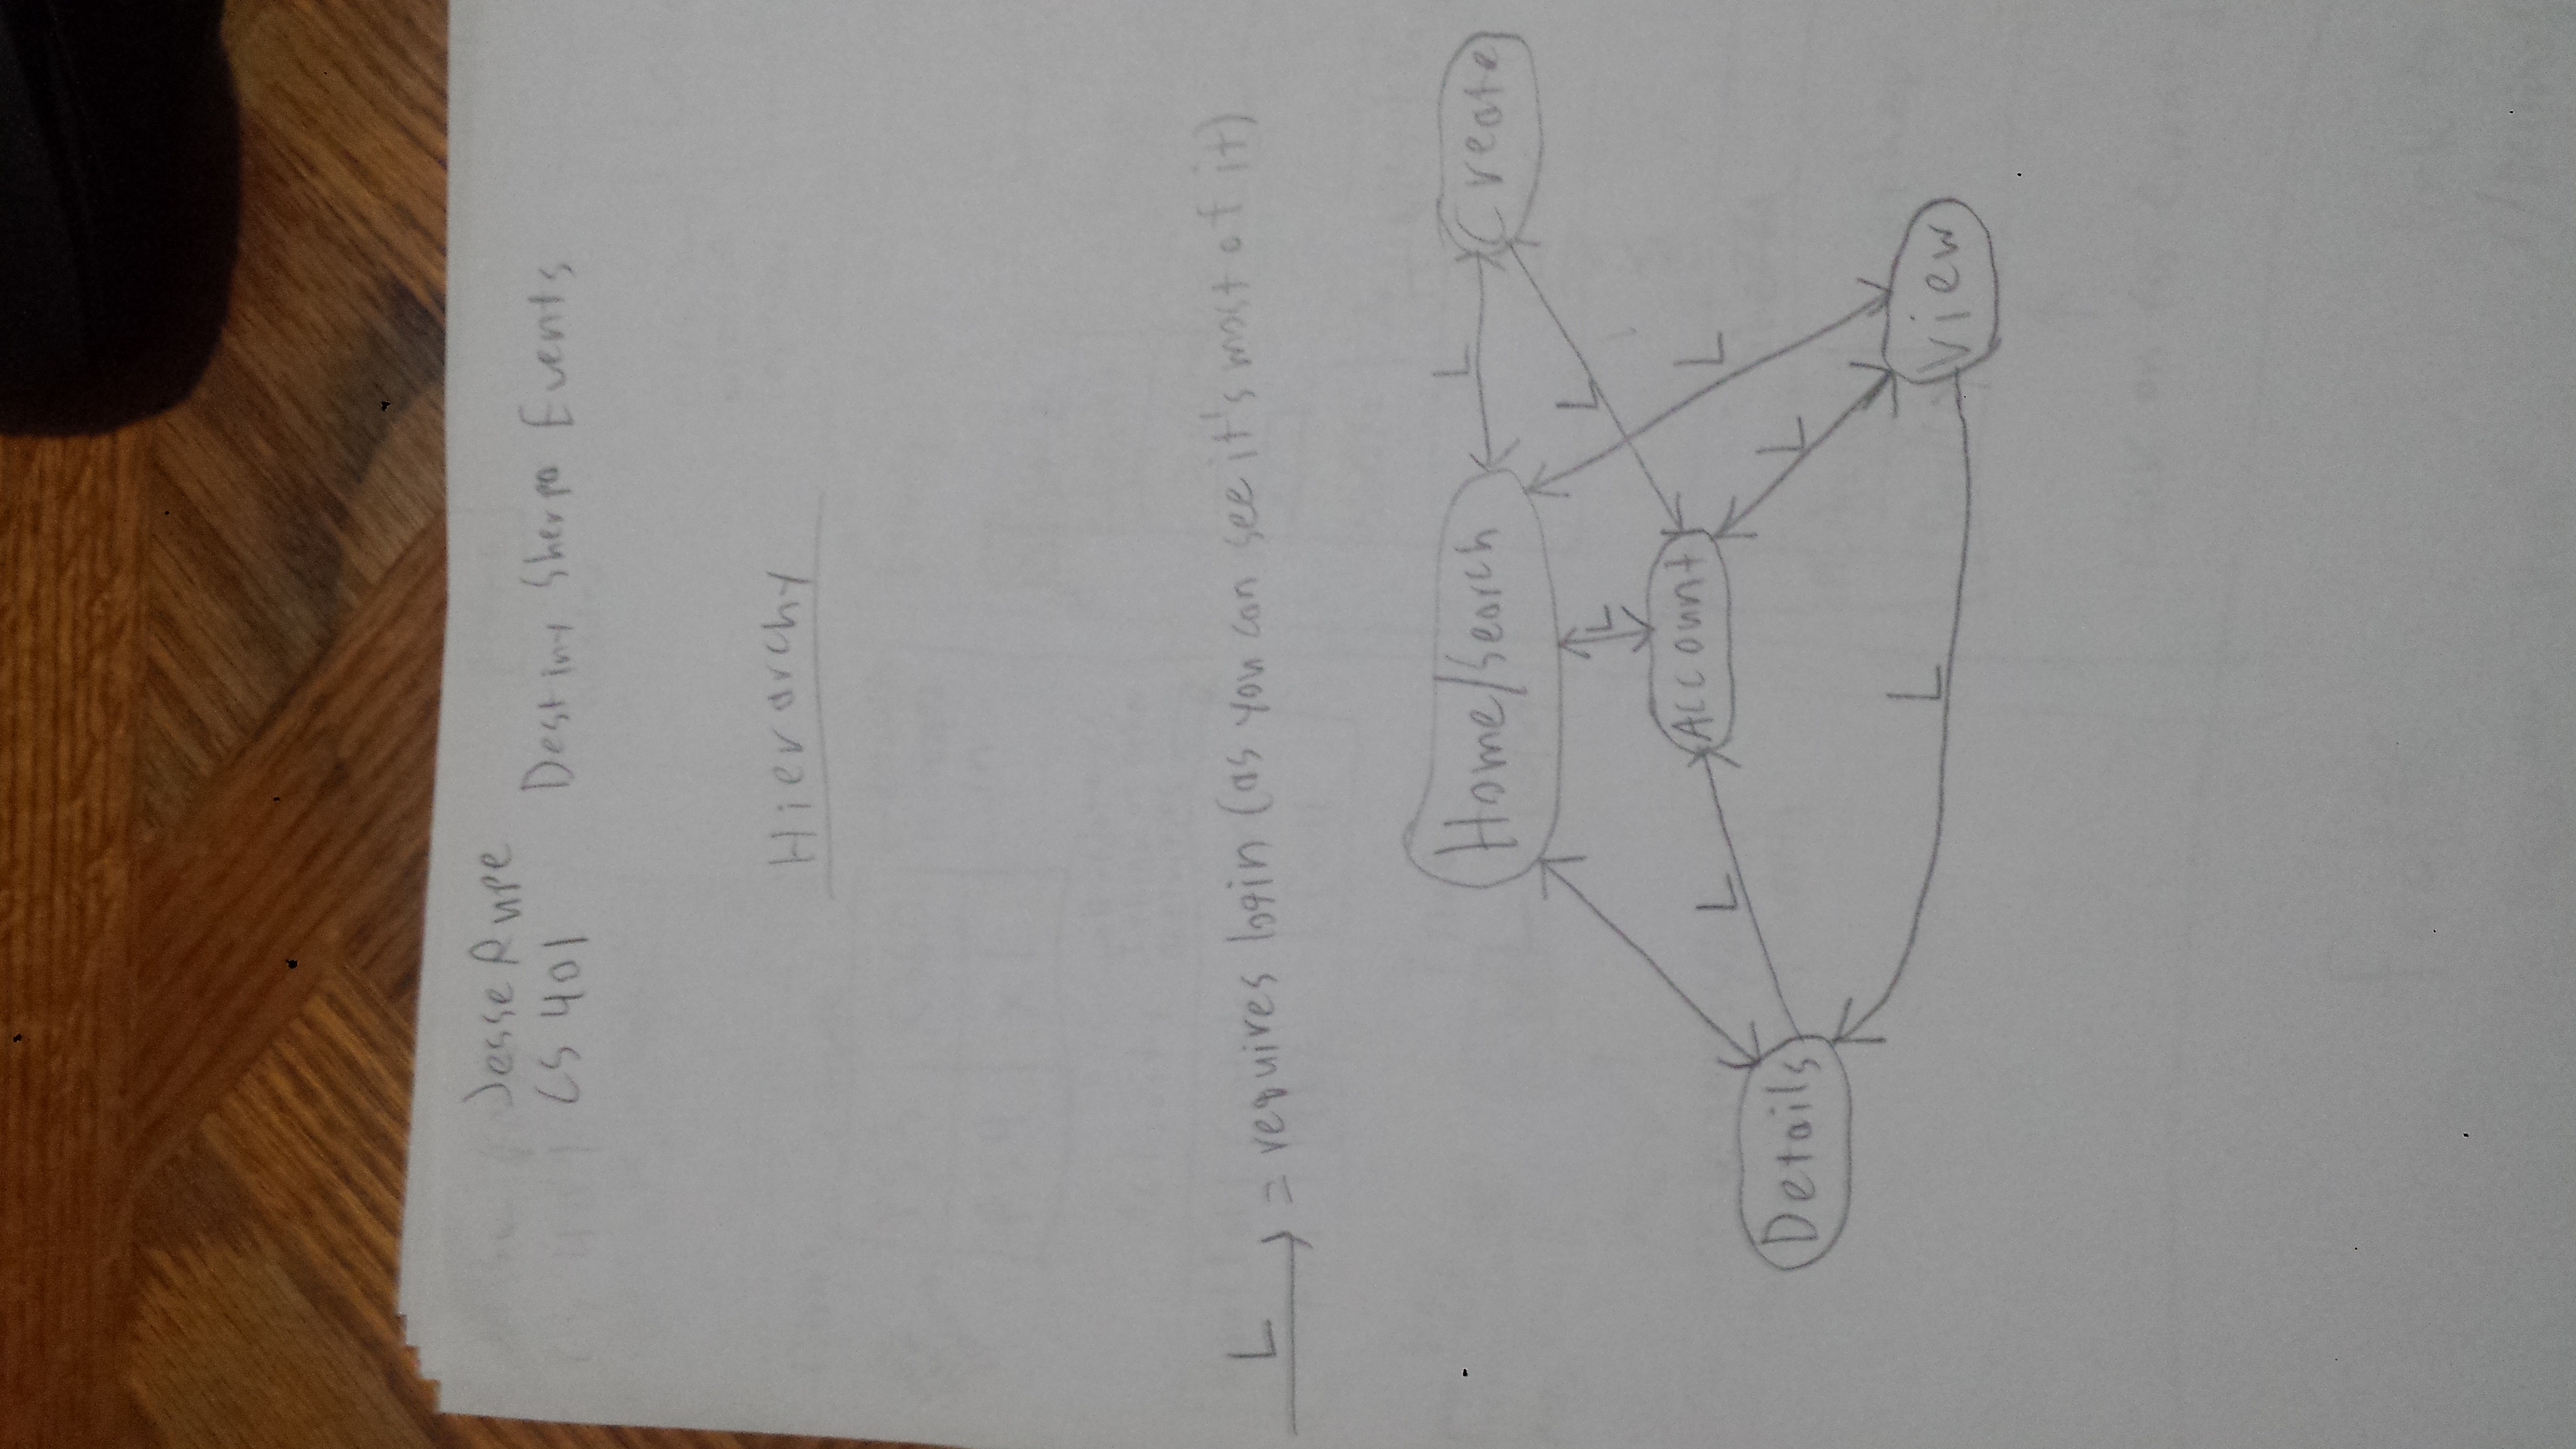 Jesse Rupe
CS 401 Destiny Sherpa Events
Hierarchy
L = requires login (as you can see it's most of it)
Home/Search
L
Create
L
L
Account
L
L
Details
L
L
View